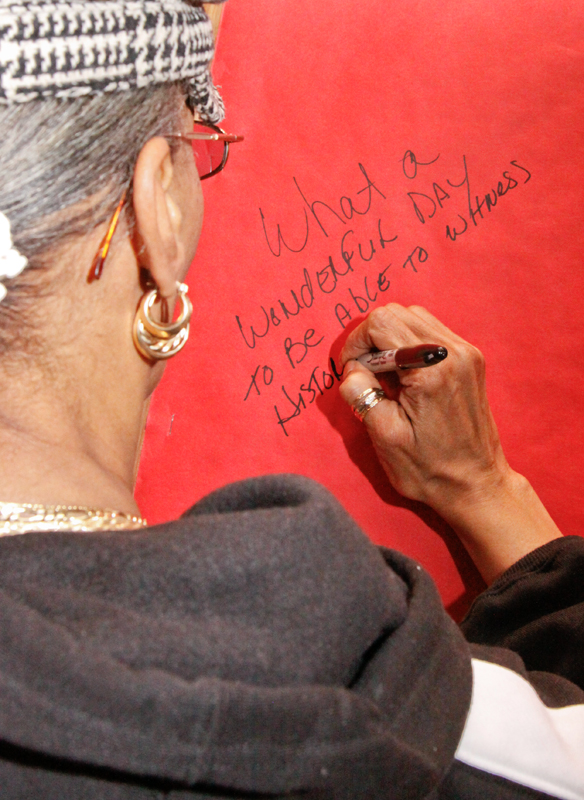 What a
WONDERFUL DAY
TO BE ABLE TO WITNESS
HISTOR